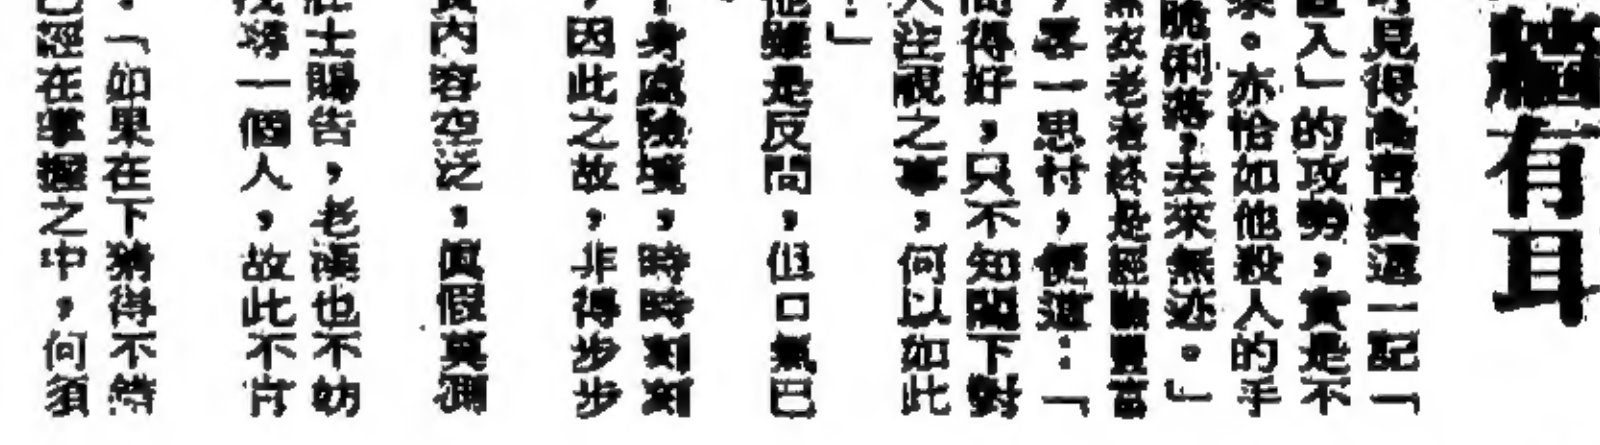 牆有耳
見得高青雲這一記「
直入」的攻勢，實是不
。亦恰如他殺人的手
脆俐落，去來無迹。」
衣老者終是經驗豐富
，畧一思忖，便道：「
問得好，只不知閣下對
人注視之事，何以如此
！」
他雖是反問，但口氣巴
身處險境，時時刻刻
，因此之故，非得步步
內容空泛，眞假莫測
壯士賜告，老漢也不妨
找尋一個人，故此不肯
。「如果在下猜得不錯
已經在掌握之中，何須